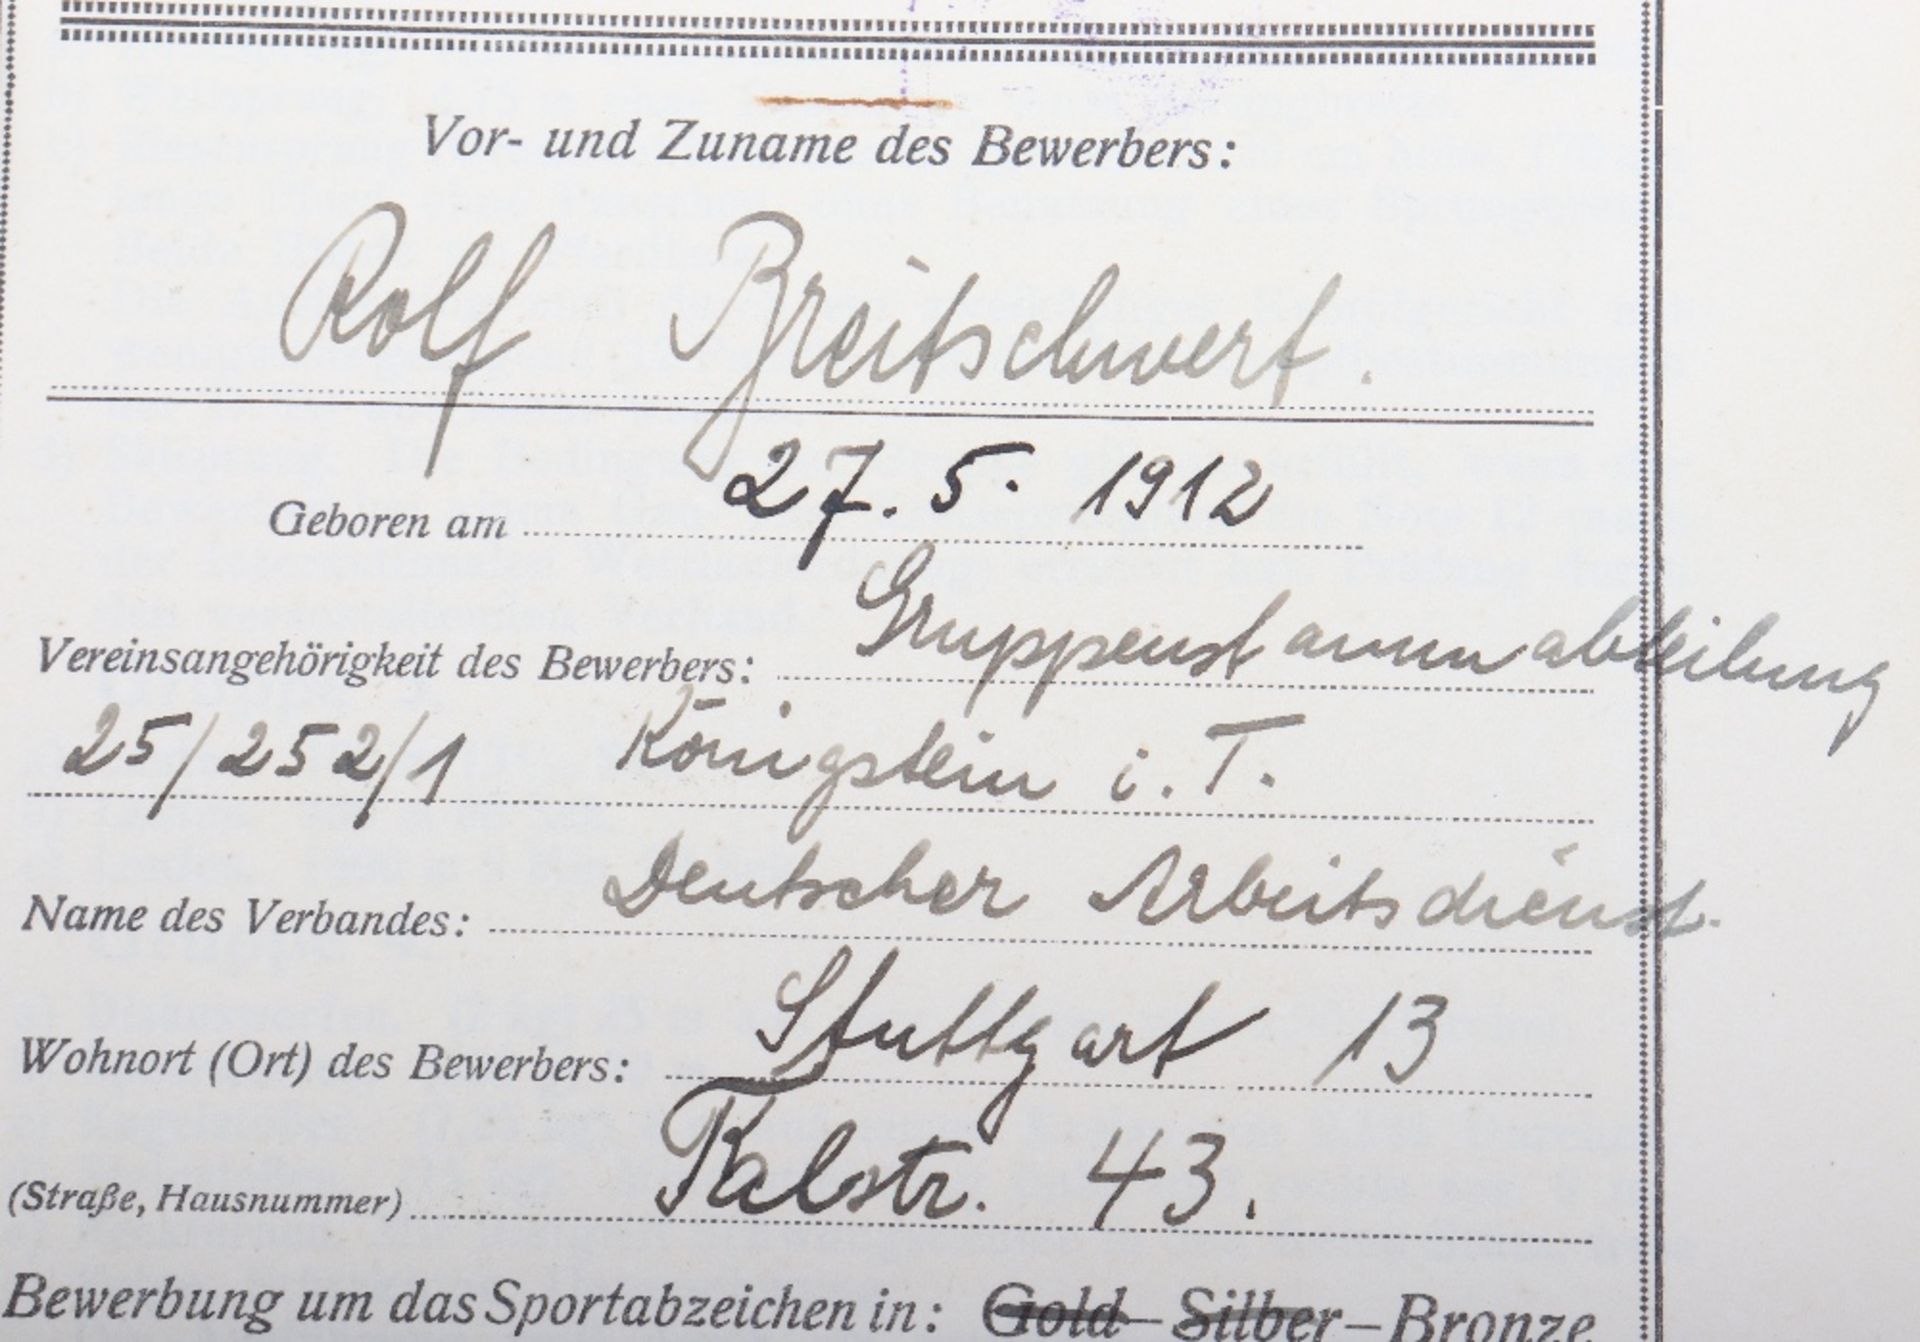 Vor- und Zuname des Bewerbers:
Rolf Breitschwert.
Geboren am 27. 5. 1912
Vereinsangehörigkeit des Bewerbers: Gruppenstammabteilung
25/252/1 Königstein i. T.
Name des Verbandes: Deutscher Arbeitsdienst.
Wohnort (Ort) des Bewerbers: Stuttgart 13
(Straße, Hausnummer) 43.
Bewerbung um das Sportabzeichen in: Gold – Silber – Bronze